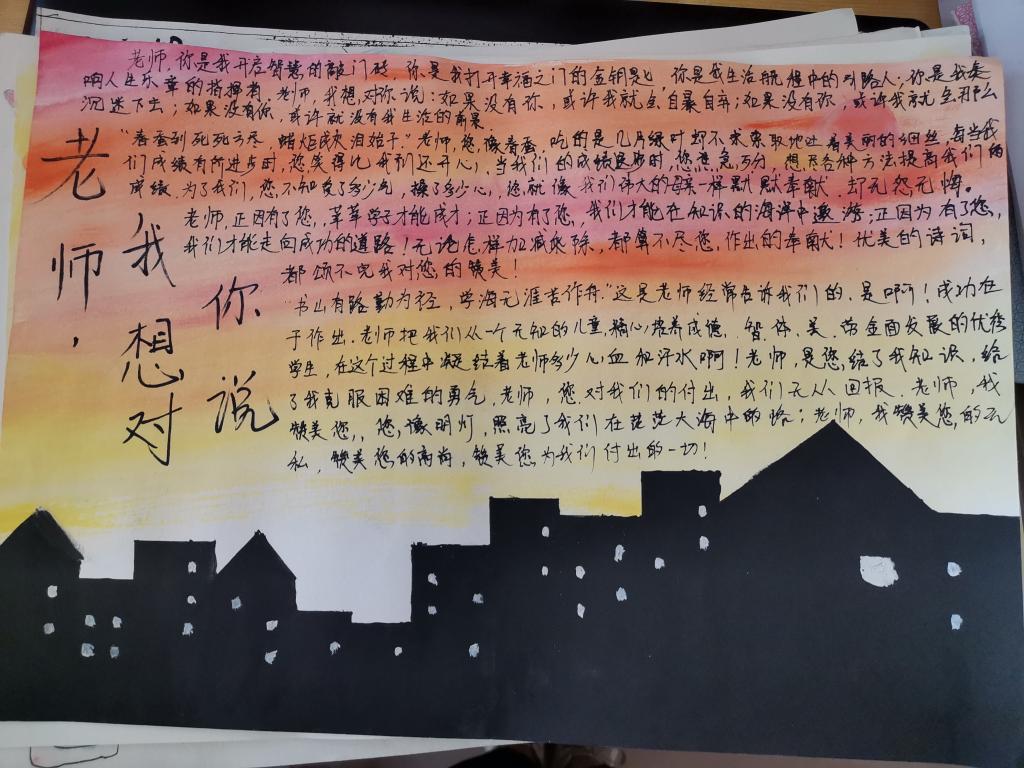 老师,我想对你说
老师,你是我开启智慧的敲门砖,你是我打开幸福之门的金钥匙,你是我生活航程中的引路人,你是我奏
响人生乐章的指挥者,老师,我想对你说:如果没有你,或许我就会自暴自弃;如果没有你,或许我就会那么
沉迷下去;如果没有你,或许就没有我生活的
“春蚕到死丝方尽,蜡炬成灰泪始干”老师,您像春蚕,吃的是几片绿叶却不求索取地吐着美丽的细丝,每当我
们成绩有所进步时,您笑得比我们还开心,当我们的成绩退步时,您焦急万分,想尽各种方法提高我们的
成绩.为了我们,您不知受了多少气,操了多少心,您就像我们伟大的母亲一样默默奉献.却无怨无悔。
老师,正因有了您,莘莘学子才能成才;正因为有了您,我们才能在知识的海洋中遨游;正因为有了您,
我们才能走向成功的道路!无论怎样加减乘除,都算不尽您,作出的奉献!优美的诗词,
都颂不完我对您的赞美!
“书山有路勤为径,学海无涯苦作舟.”这是老师经常告诉我们的.是啊!成功在
于作出.老师把我们从一个无知的儿童,精心培养成德、智、体、美、劳全面发展的优秀
学生,在这个过程中凝结着老师多少心血和汗水啊!老师,是您,给了我知识,给
了我克服困难的勇气,老师,您对我们的付出,我们无从回报.老师,我
赞美您,,您,像明灯,照亮了我们在茫茫大海中的路;老师,我赞美您,的无
私,赞美您的高尚,赞美您为我们付出的一切!